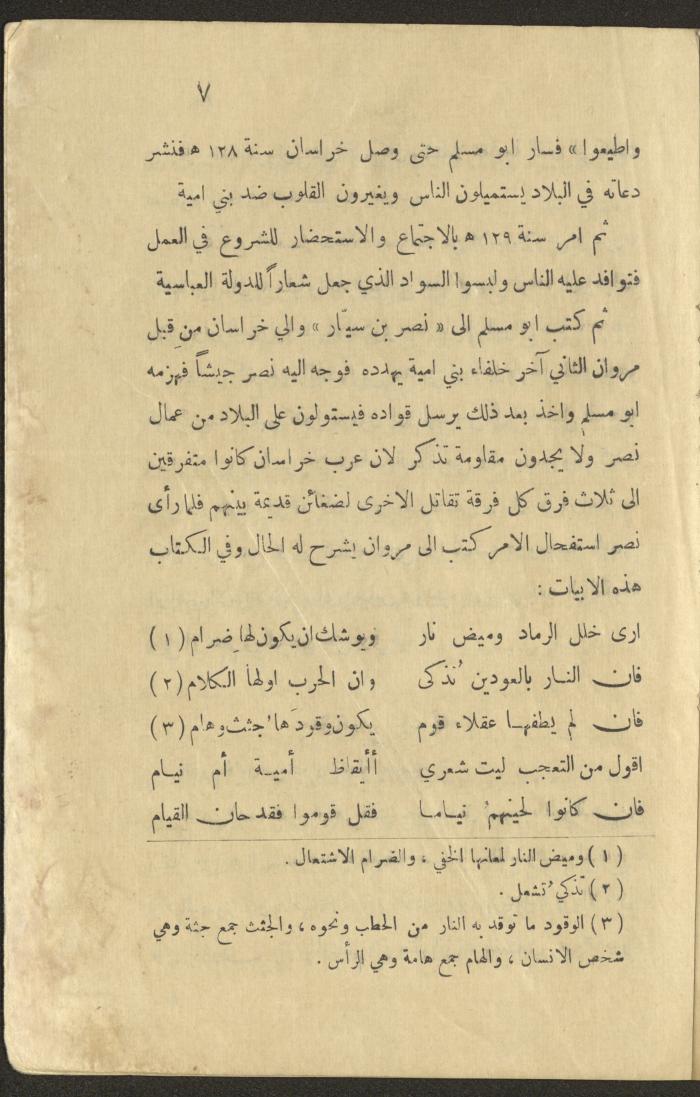 ٧
واطيعوا » فسار ابو مسلم حتى وصل خراسان سنة ١٢٨ ه فنشر
دعاته في البلاد يستميلون الناس ويغيرون القلوب ضد بني امية
ثم امر سنة ١٢٩ ه بالاجتماع والاستحضار للشروع في العمل
فتوافد عليه الناس ولبسوا السواد الذي جعل شعاراً للدولة العباسية
ثم كتب ابو مسلم الى « نصر بن سيّار » والي خراسان من قِبل
مروان الثاني آخر خلفاء بني امية يهدده فوجه اليه نصر جيشاً فهزمه
ابو مسلم واخذ بعد ذلك يرسل قواده فيستولون على البلاد من عمال
نصر ولا يجدون مقاومة تذكر لان عرب خراسان كانوا متفرقين
الى ثلاث فرق كل فرقة تقاتل الاخرى لضغائن قديمة بينهم فلما رأى
نصر استفحال الامر كتب الى مروان يشرح له الحال وفي الكتاب
هذه الابيات :
ارى خلل الرماد وميض نار ويوشك ان يكون لها ضرام ( ١ )
فان النار بالعودين تُذكى وان الحرب اولها الكلام ( ٢ )
فان لم يطفها عقلاء قوم يكون وقودَها جثث وهام ( ٣ )
اقول من التعجب ليت شعري أأيقاظ أمية أم نيام
فان كانوا لحينهمُ نياما فقل قوموا فقد حان القيام
( ١ ) وميض النار لمعانها الخفي ، والضرام الاشتعال .
( ٢ ) تذكي تُشعل .
( ٣ ) الوقود ما توقد به النار من الحطب ونحوه ، والجثث جمع جثة وهي
شخص الانسان ، والهام جمع هامة وهي الرأس .